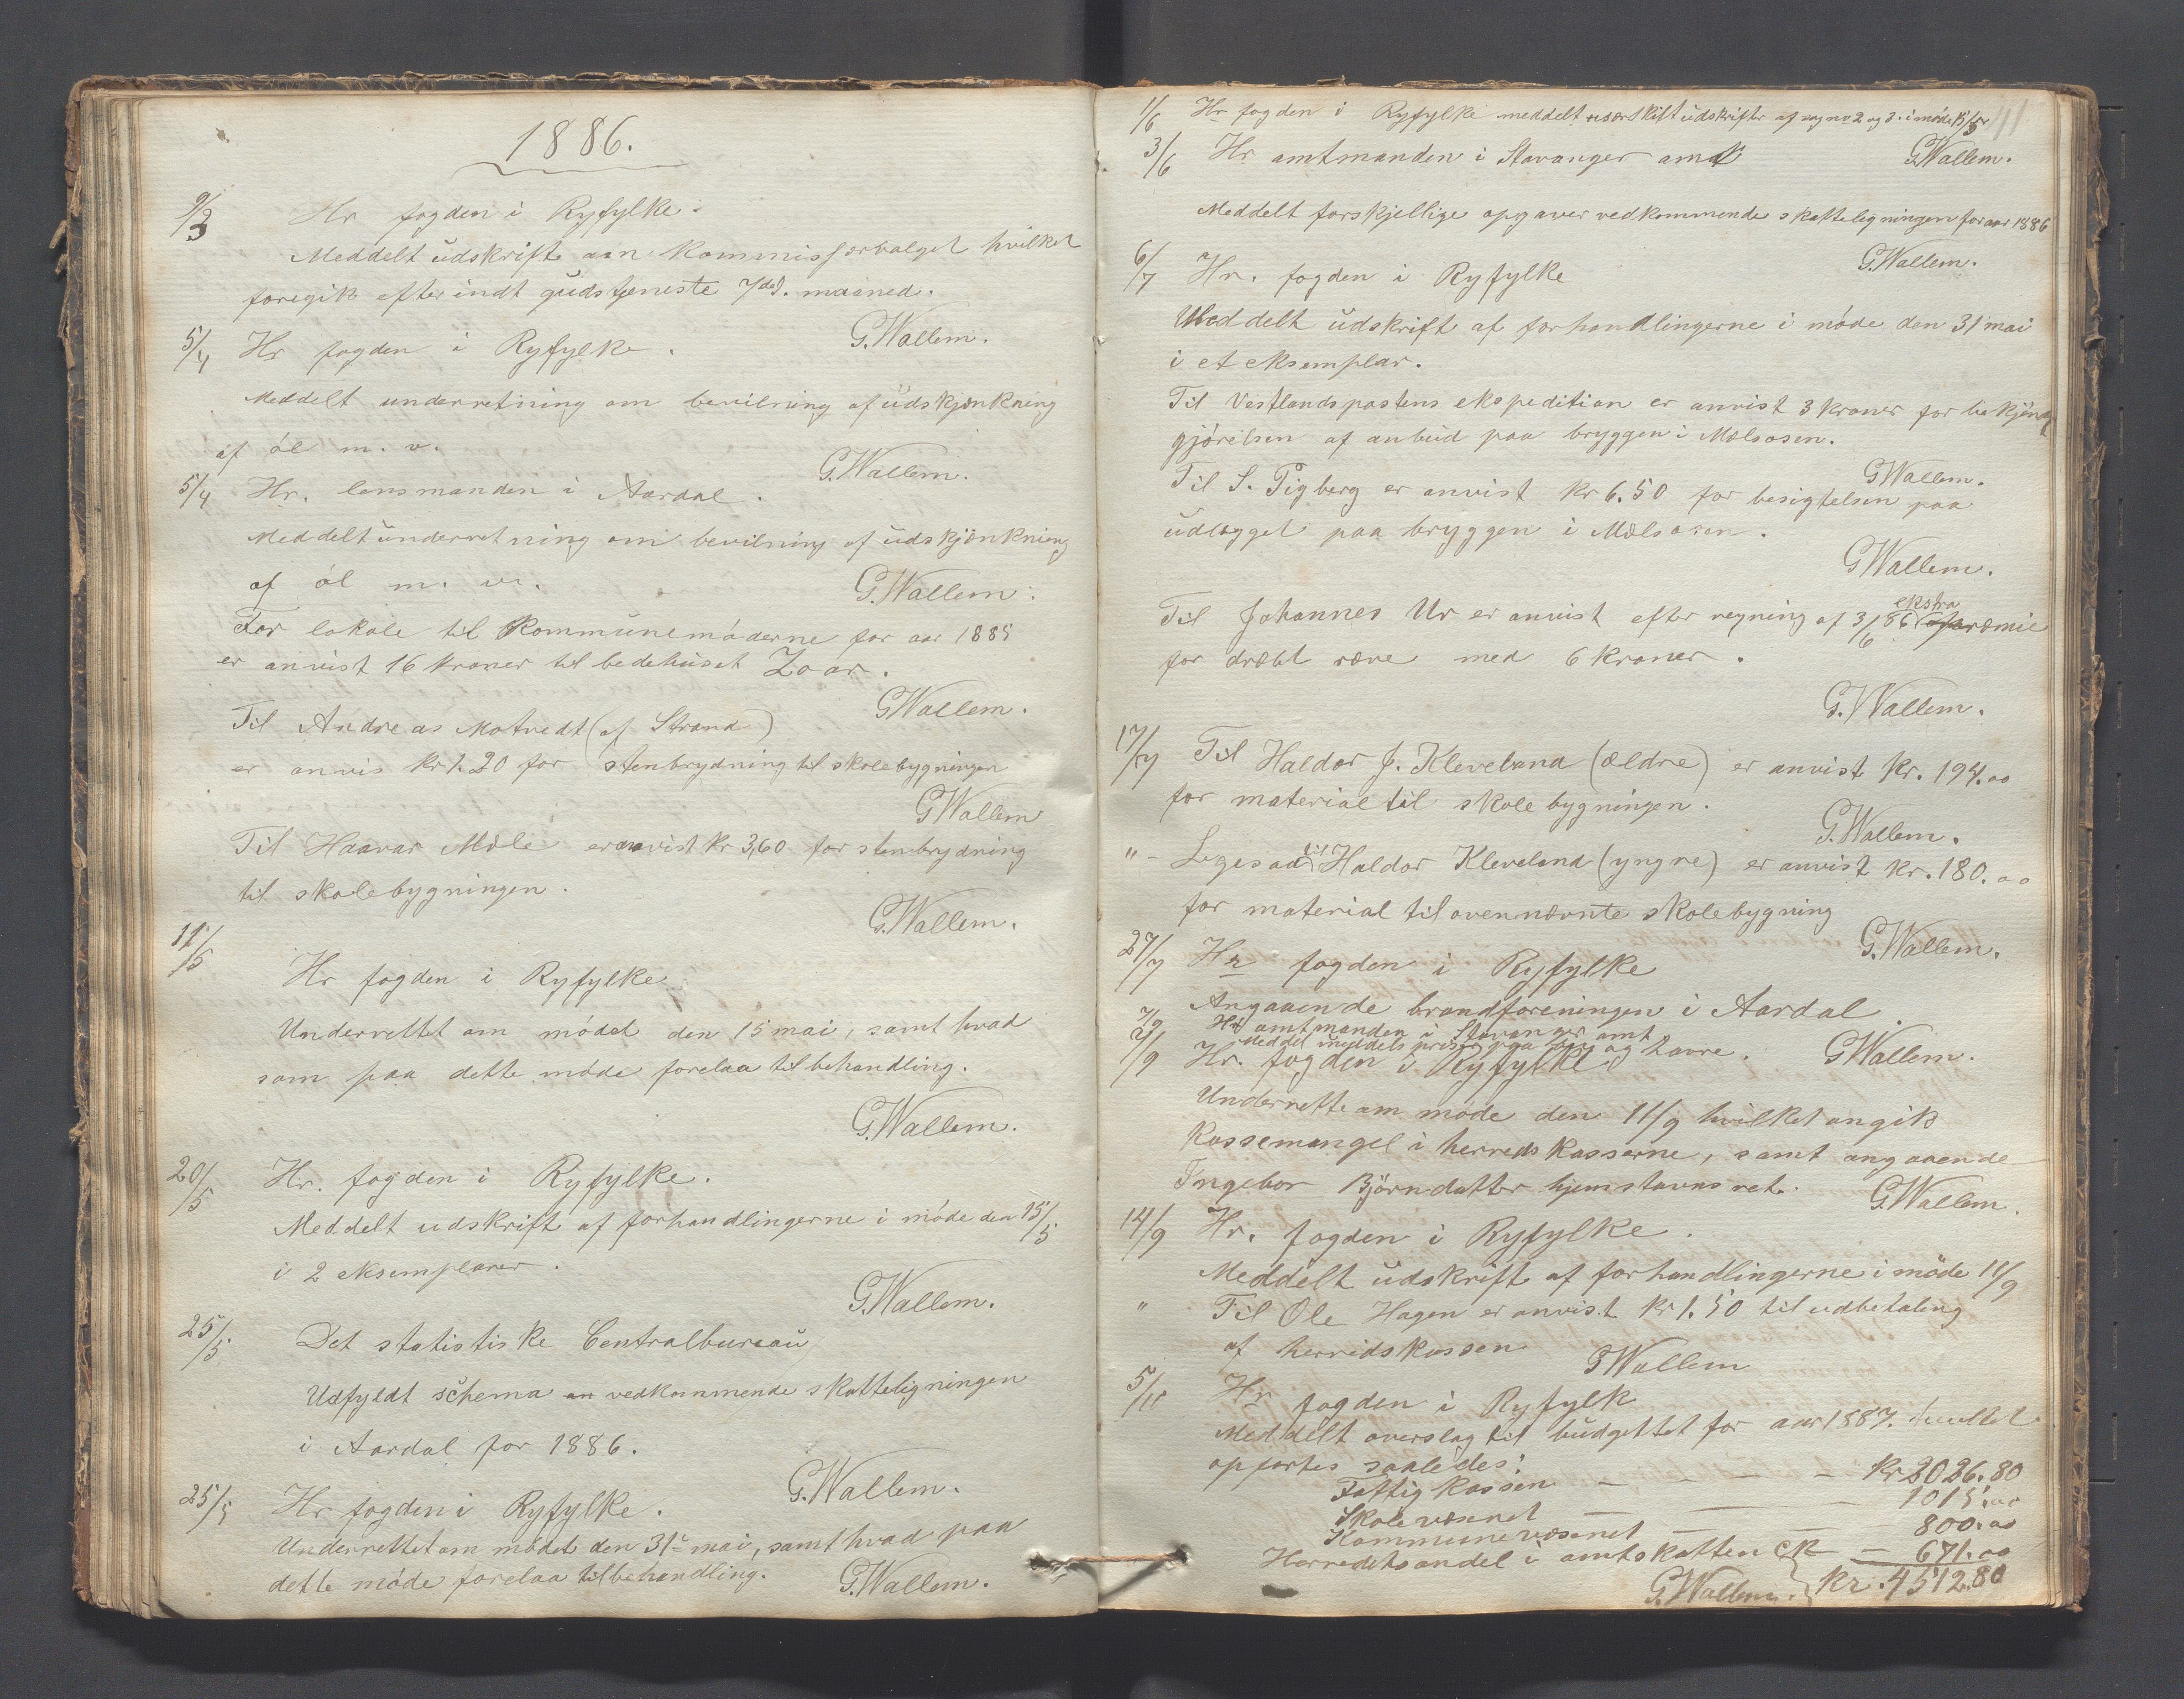 1886.
9/3 Hr fogden i Ryfylke.
Meddelt udskrift om kommissærvalget hvilket
foregik efter indt gudstjeneste 7 ds. maaned.
G. Wallem.
5/4 Hr fogden i Ryfylke.
Meddelt underretning om bevilning af udskjænkning
af øl m. v.
G. Wallem.
5/4 Hr. lensmanden i Aardal.
Meddelt underretning om bevilning af udskjænkning
af øl m. v.
G. Wallem.
For lokale til Kommunemøderne for aar 1885
er anvist 16 kroner til bedehuset Zoar.
G Wallem.
Til Andreas Motvedt (af Strand)
er anvis kr 1.20 for stenbrydning til skolebygningen
G Wallem
Til Haavar Mæle er anvist kr 3,60 for stenbrydning
til skolebygningen.
G. Wallem.
11/5
Hr fogden i Ryfylke.
Underrettet om mødet den 15 mai, samt hvad
som paa dette møde forelaa til behandling.
G. Wallem.
20/5 Hr. fogden i Ryfylke.
Meddelt udskrift af forhandlingerne i møde den 15/5
i 2 eksemplarer.
G. Wallem.
25/5 Det statistiske Centralbureau
Udfyldt schema vedkommende skatteligningen
i Aardal for 1886.
G. Wallem.
25/5 Hr fogden i Ryfylke.
Underrettet om mødet den 31te mai, samt hvad paa
dette møde forelaa til behandling. G. Wallem.
1/6 Hr fogden i Ryfylke meddelt særskilt udskrifter af sag no 2 og 3 i møde 15/5
G Wallem.
3/6 Hr amtmanden i Stavanger amt
Meddelt forskjellige opgaver vedkommende skatteligningen for aar 1886
G. Wallem.
6/7 Hr. fogden i Ryfylke
Meddelt udskrift af forhandlingerne i møde den 31 mai
i et eksemplar.
Til Vestlandspostens ekspedition er anvist 3 kroner for bekjendt
gjørelsen af anbud paa bryggen i Mælsosen.
G Wallem.
Til S. Tigberg er anvist kr 6.50 for besigtelsen paa
udlægget paa bryggen i Mælsosen.
G Wallem.
Til Johannes Ur er anvist efter regning af 3/6 86 ekstra præmie
for dræbt ræve med 6 kroner.
G. Wallem.
17/7 Til Haldor J. Kleveland (ældre) er anvist kr. 194.00
for material til skolebygningen.
G. Wallem.
" - Ligesaa til Haldor Kleveland (yngre) er anvist kr. 180.00
for material til ovennævnte skolebygning
G. Wallem.
27/7 Hr fogden i Ryfylke
Angaaende brandforeningen i Aardal.
7/9 Hr amtmanden i Stavanger amt
Meddel meddels priser paa og havre. G Wallem.
4/9 Hr. fogden i Ryfylke
Underrette om møde den 11/9 hvilket angik
Kassemangel i herreds kasserne, samt angaaende
Ingebor Bjørndatter hjemstavnsret. G. Wallem.
14/9 Hr. fogden i Ryfylke.
Meddelt udskrift af forhandlingerne i møde 11/9
" Til Ole Hagen er anvist kr 1.50 til udbetaling
af herredskassen
G Wallem
5/11 Hr fogden i Ryfylk
Meddelt overslag til budgettet for aar 1887. hvilket
opførtes saaledes:
Fattigkassen - - - - Kr 2026.80
Skolevæsnet - - - 1015.00
Kommunevæsenet - - 800.00
Herredets andel i amtskatten ck - 671.00
G. Wallem. } kr. 4512.80